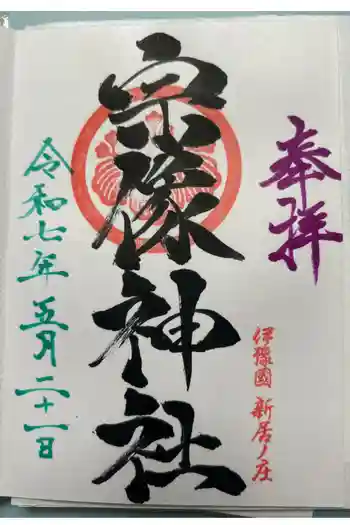 奉拝
伊豫國 新居ノ庄
宗像神社
令和七年 五月 二十一日